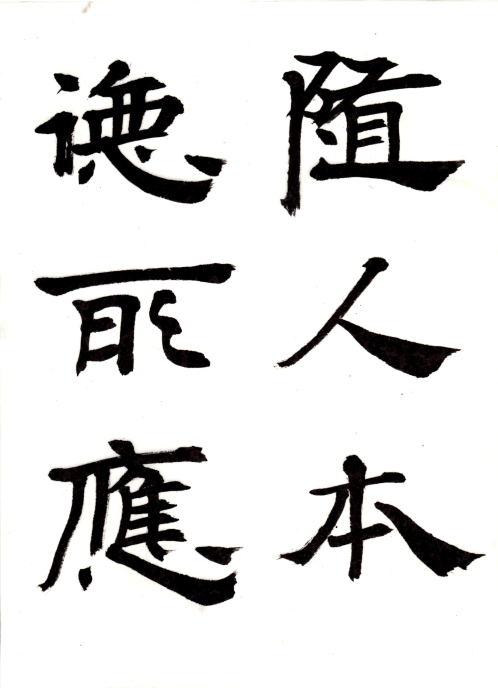 隨人本
德所應